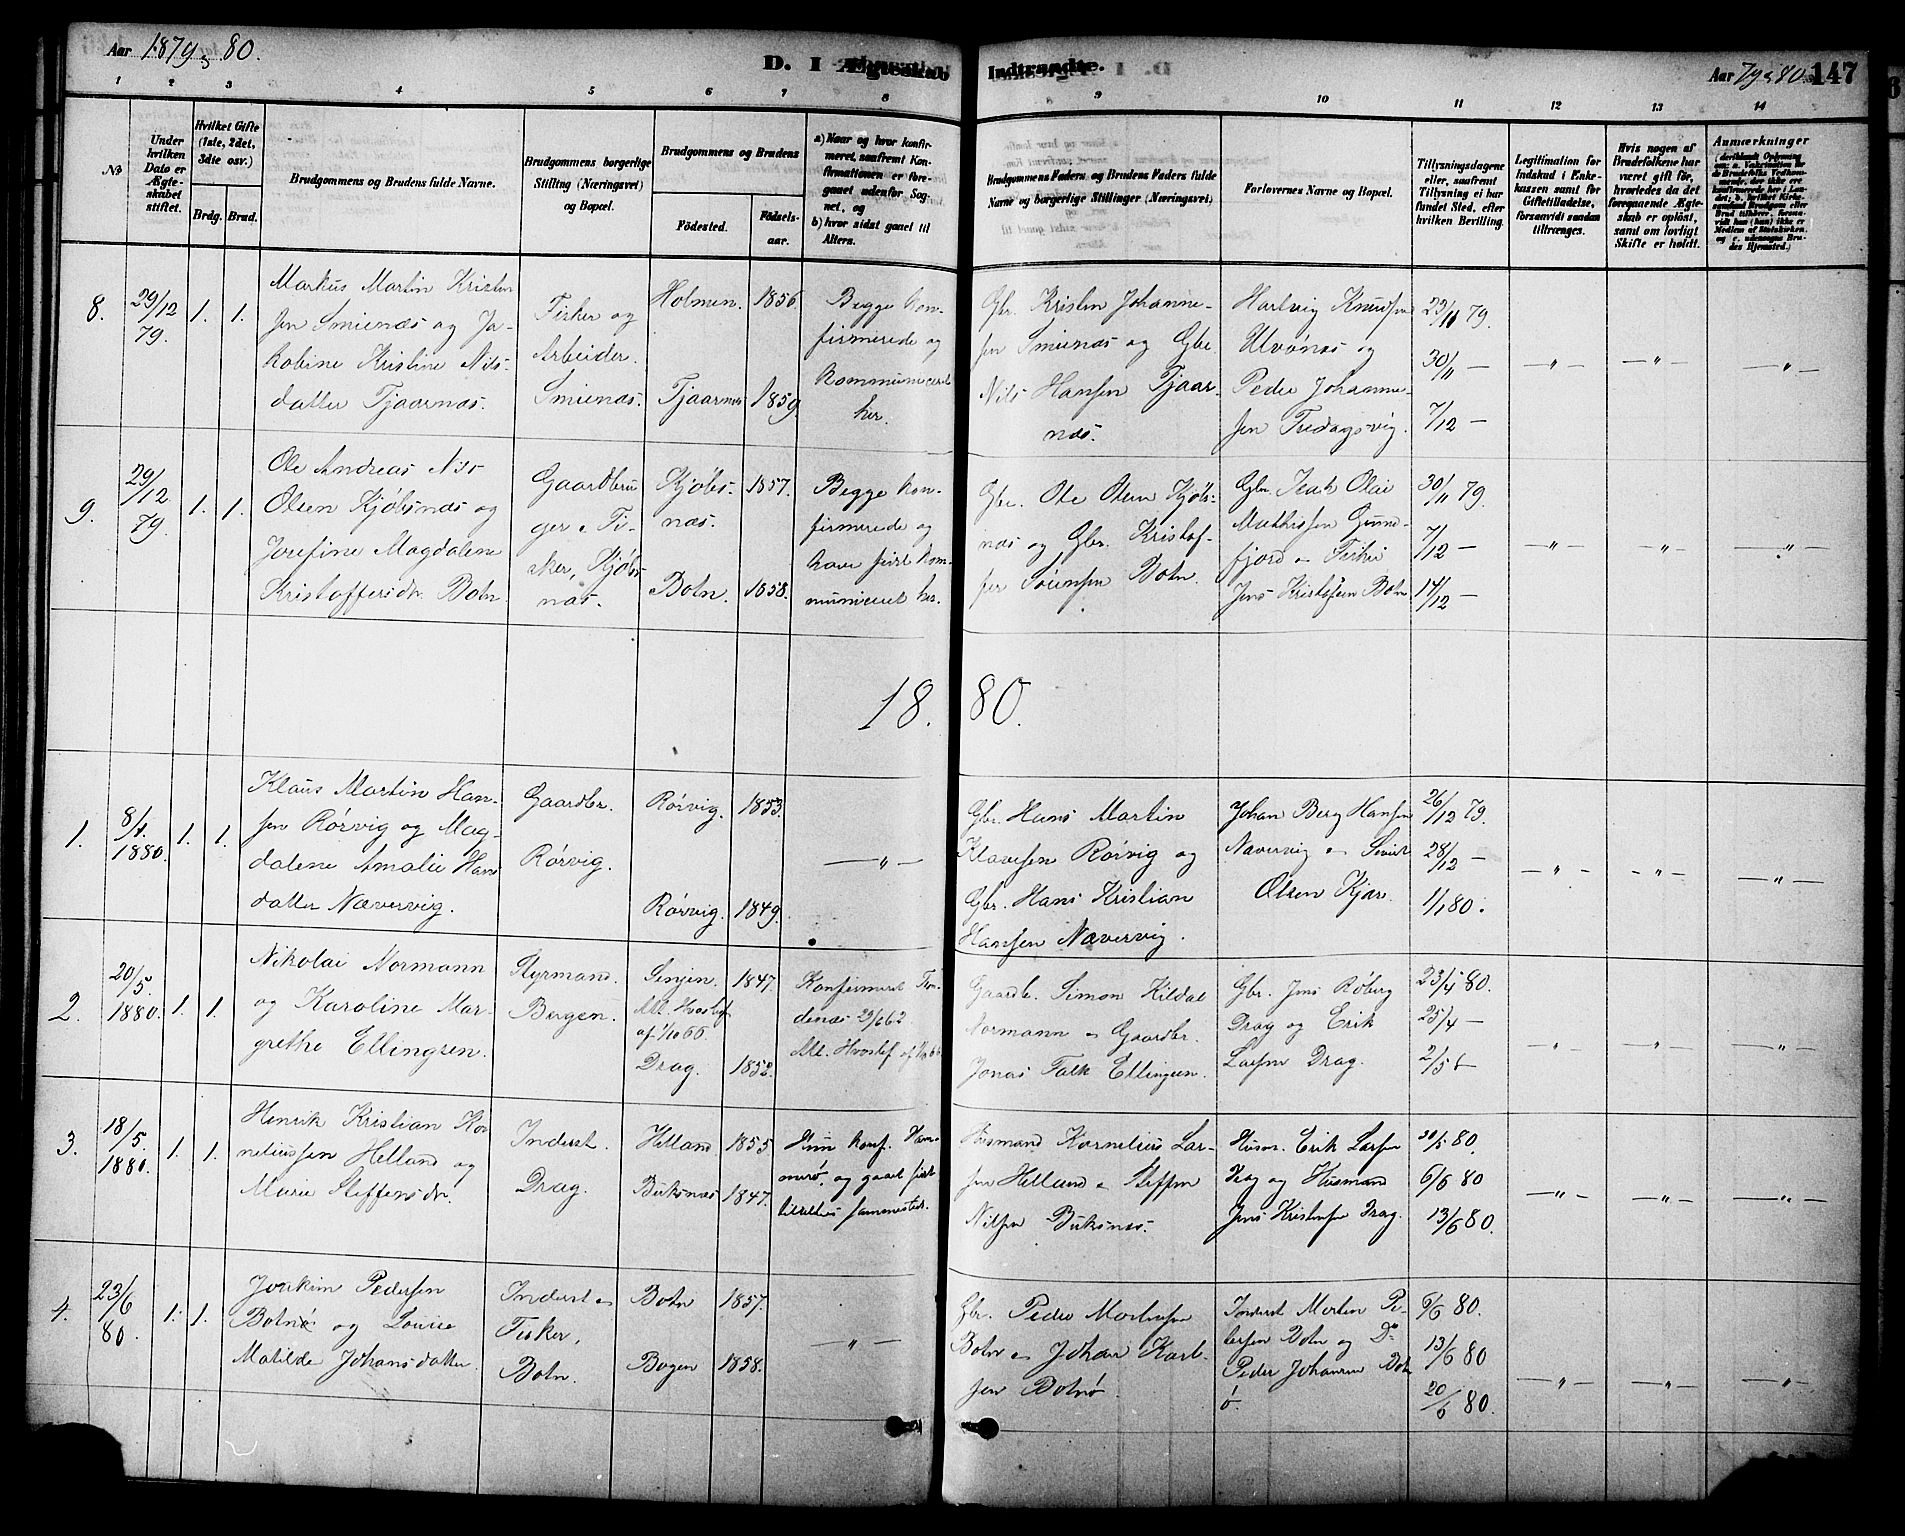 Aar 1879 & 80.
D. I Ægteskab Indtraadte.
Aar 79 & 80. 147
1 2 3 4 5 6 7 8 9 10 11 12 13 14
No
Under hvilken Dato er Ægteskabet stiftet.
Hvilket Gifte (1ste, 2det, 3die osv.)
Brdg. Brud.
Brudgommens og Brudens fulde Navne.
Brudgommens borgerlige Stilling (Næringsvei) og Bopæl.
Brudgommens og Brudens
Fødested. Fødselsaar.
a) Naar og hvor konfirmeret, saafremt Konfirmationen er foregaaet udenfor Sognet, og
b) hvor sidst gaaet til Alters.
Brudgommens Faders og Brudens Faders fulde Navne og borgerlige Stillinger (Næringsvei)
Forlovernes Navne og Bopæl.
Tillysningsdagene eller, saafremt Tillysning ei har fundet Sted, efter hvilken Bevilling.
Legitimation for Indskud i Enkekassen samt for Giftetilladelse, forsaavidt saadan tiltrænges.
Hvis nogen af Brudefolkene har været gift før, hvorledes da det foregaaende Ægteskab er opløst, samt om lovligt Skifte er holdt.
Anmærkninger
8. 29/12 79. 1. 1.
Markus Martin Kristensen
Smienæs og Jakobine
Kristine Nilsdatter
Tjaarnæs.
Fisker og
Arbeider.
Smienæs.
Holmen. 1856
Tjaarnæs 1859
Begge konfirmerede og
kommuniceret
her.
Gbr. Kristen Johannesen
Smienæs og Gbr.
Nils Hansen Tjaarnæs.
Hartvig Knudsen
Ulvønæs og
Peder Johannesen
Fredagsvig.
23/11 79.
30/11 —
7/12 —
— " — — " — — " —
9. 29/12 79 1. 1.
Ole Andreas Nils
Olsen Kjøbsnæs og
Josefine Magdalene
Kristoffersdr. Botn
Gaardbruger
& Fisker,
Kjøbsnæs.
Kjøbsnæs. 1857.
Botn. 1858.
Begge konfirmerede og
have sidst kommuniceret
her.
Gbr. Ole Olsen Kjøbsnæs
og Gbr. Kristoffer
Sørensen Botn.
Gbr. Isak Olai
Mathissen Grundfjord
& Fisker
Jens Kristofersen Botn
30/11 79.
7/12 —
14/12 —
— " — — " — — " —
18. 80.
1. 8/1. 1880. 1. 1.
Klaus Martin Hansen
Rørvig og Magdalene
Amalie Hansdatter
Nævervig.
Gaardbr.
Rørvig.
Rørvig. 1853.
Rørvig. 1849.
— " —
Gbr. Hans Martin
Klausen Rørvig og
Gbr. Hans Kristian
Hansen Nævervig.
Johan Berg Hansen
Nævervig &
Olsen Kjær.
26/12 79.
28/12 —
1/1 80.
— " — — " — — " —
2. 20/5. 1880. 1. 1.
Nikolai Normann
og Karoline Margrethe
Ellingsen.
Styrmand.
Bergen.
Senjen. 1847.
Att. Hvoslef
af 1/10 66
Drag. 1852.
Konfirmeret Trondenæs
29/6 62
Att. Hvoslef af 1/10 66
Gaardb. Simon Kildal
Normann & Gaardbr.
Jonas Falk Ellingsen.
Gbr. Jens Røberg
Drag og Erik
Larsen Drag.
23/4 80.
25/4 —
2/5 —
" — " — — " —
3. 18/5. 1880. 1. 1.
Henrik Kristian Korneliussen
Helland og
Marie Steffensdr.
Inderst.
Drag.
Helland 1855
Buksnæs 1847.
Hun konf. Hammerø,
og gaaet sidst
til alters sammesteds.
Husmand Kornelius Larsen
Helland & Steffen
Nilsen Buksnæs.
Husm. Erik Larsen
Drag og Husmand
Jens Kristensen Drag.
30/5 80.
6/6 80
13/6 80.
— " — — " — — " —
4. 23/6 80. 1. 1.
Joakim Pedersen
Botnø og Lovise
Matilde Johansdatter.
Inderst &
Fisker,
Botn.
Botn 1857.
Bogen 1858.
— " —
Gbr. Peder Mortensen
Botn & Johan Karlsen
Botnø
Inderst Morten Pedersen
Botn og Do
Peder Johansen Botnø.
6/6 80.
13/6 80
20/6 80.
— " — — " — — " —